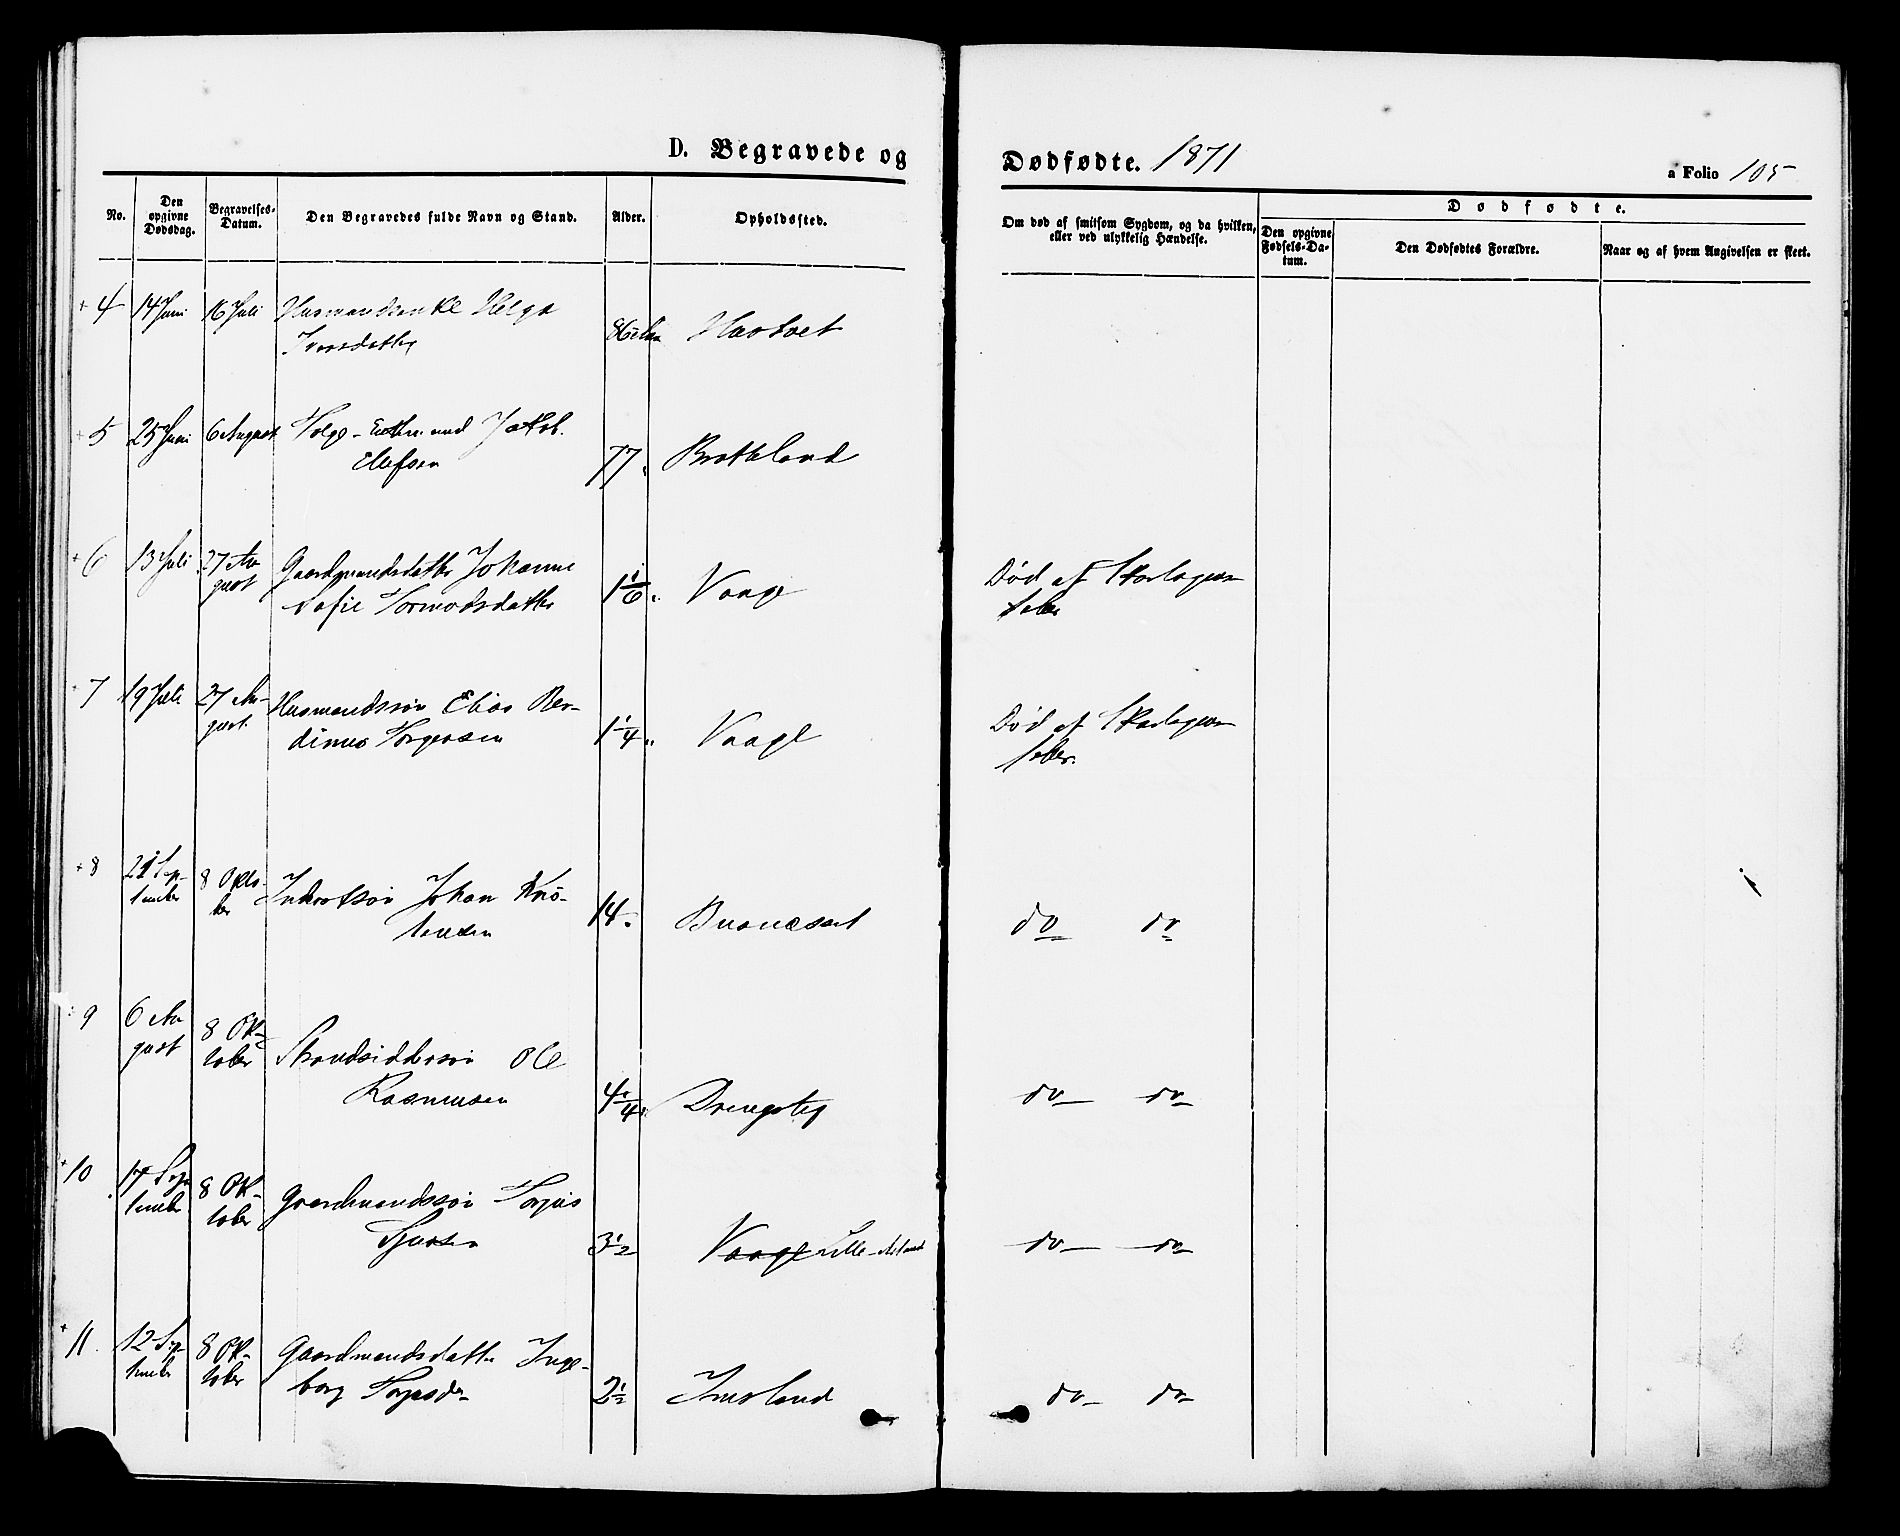 D. Begravede og Dødfødte. 1871
a Folio 105
No.
Den opgivne Dødsdag.
Begravelses-Datum.
Den Begravedes fulde Navn og Stand.
Alder.
Opholdssted.
Om død af smitsom Sygdom, og da hvilken, eller ved ulykkelig Hændelse.
Dødfødte.
Den opgivne Fødsels-Datum.
Den Dødfødtes Forældre.
Naar og af hvem Angivelsen er skeet.
4 14 Juni 16 Juli Husmandsenke Helga
Iversdatter 86 Hastvet
5 25 Juni 6 August Jakob
Ellefsen 77 Bratteland
6 13 Juli 27 Au-
gust Gaardmandsdatter Johanne
Sofie Tormodsdatter 1 1/6 Vaage Død af Skarlagens
feber
7 19 Juli 27 Au-
gust Husmandssøn Elias Ber-
dinus Torgersen 1 1/4 Vaage Død af Skarlagens
feber.
8 21 Sep-
tember 8 Okto-
ber Inderstsøn Johan Kris-
tensen 14 do do
9 6 Au
gust 8 Ok-
tober Strandsiddersøn Ole
Rasmusen 4 1/4 Drengstig do do
10 17 Sep
tember 8 Ok-
tober Gaardmandssøn Torjus
Sjursen 3 1/2 Vaage Lille- do do
11. 12 Sep-
tember 8 Ok-
tober Gaardmandsdatter Inge-
borg Torjesdr 2 1/2 Imsland do do